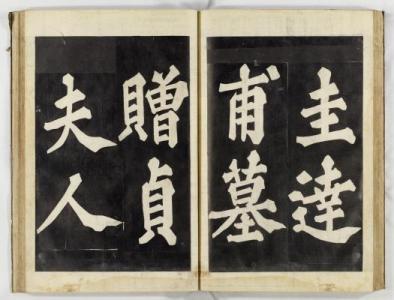 圭達
甫墓
贈貞
夫人